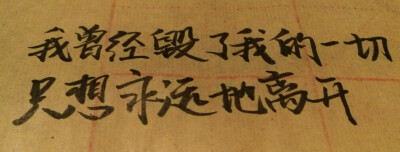 我曾经毁了我的一切
只想永远地离开